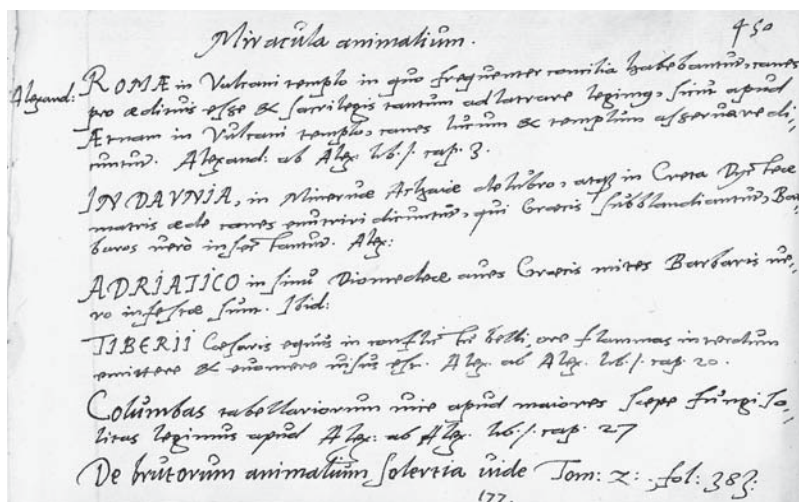 450
Miracula animalium.
Alexand: ROMÆ in Vulcani templo in quo frequenter concilia habebantur, canes
pro ædituis esse & sacrilegis tantum adlatrare legimus, sicut apud
Ætnam in Vulcani templo, canes lucum & templum asseruare di-
cuntur. Alexand: ab Alex: lib. 1. cap. 3.
IN DAVNIA, in Minervæ Achaiæ delubro, atque in Creta Dycteæ
matris æde canes enutriri dicuntur, qui Græcis subblandiantur, Bar
baros verò insectantur. Alex:
ADRIATICO in sinu Diomedeæ aues Græcis mites Barbaris ve-
ro infestæ sunt. Ibid:
TIBERII Cesaris equus in conflictu belli, ore flammas interdum
emittere & euomere uisus est. Alex: ab Alex. lib. 1. cap. 20.
Columbas tabellariorum uice apud maiores sæpe fungi so-
litas legimus apud Alex: ab Alex. lib. 1. cap. 27
De brutorum animalium solertia uide Tom: 2: fol: 383:
177.